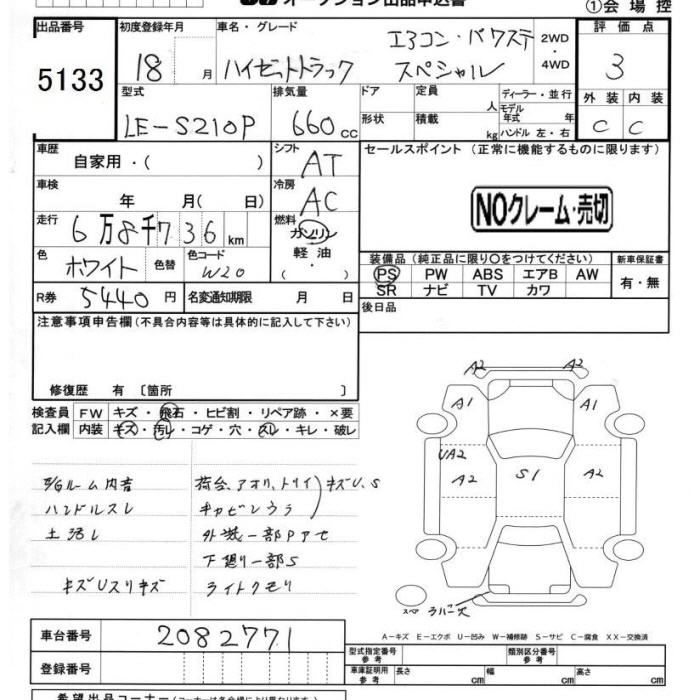 オークション出品申込書
①会場控
出品番号
5133
初度登録年月
18 月
車名・グレード
エアコン・パワステ
ハイゼットトラック スペシャル
2WD・4WD
評価点
3
外装 内装
C C
型式
LE-S210P
排気量
660cc
ドア
形状
定員 人
積載 kg
ディーラー・並行
モデル年式 年
ハンドル 左・右
車歴
自家用・( )
シフト
AT
車検
年 月( 日)
冷房
AC
走行
6万8千736km
燃料
ガソリン
軽油
色
ホワイト
色替
色コード
W20
R券 5440円
名変通知期限 月 日
セールスポイント (正常に機能するものに限ります)
NOクレーム・売切
装備品(純正品に限り○をつけてください)
PS PW ABS エアB AW
SR ナビ TV カワ
新車保証書
有・無
後日品
注意事項申告欄(不具合内容等は具体的に記入して下さい)
修復歴 有〔箇所 〕
検査員記入欄
FW キズ・飛石・ヒビ割・リペア跡・×要
内装 キズ・汚レ・コゲ・穴・スレ・キレ・破レ
ハンドルスレ
荷台、アオリ、トリイ キズU、S
キャビンウラ
外装一部Pアセ
下廻り一部S
ライトクモリ
キズUスリキズ
A2 A2
A1 A1
UA2
A2 S1 A2
スペ ラバース
A-キズ E-エクボ U-凹み W-補修跡 S-サビ C-腐食 XX-交換済
車台番号 2082771
登録番号
型式指定番号 参考
類別区分番号 参考
車庫証明用 参考 長さ cm 幅 cm 高さ cm
希望出品コーナー